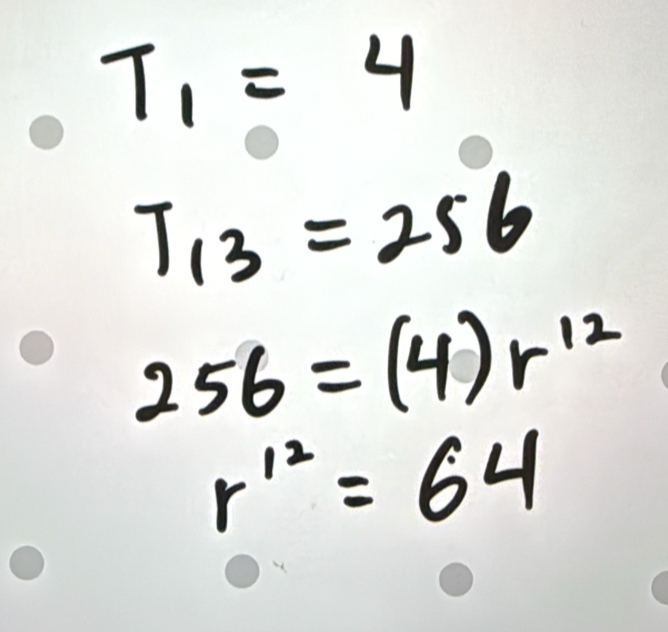 T₁ = 4
T₁₃ = 256
256 = (4)r¹²
r¹² = 64